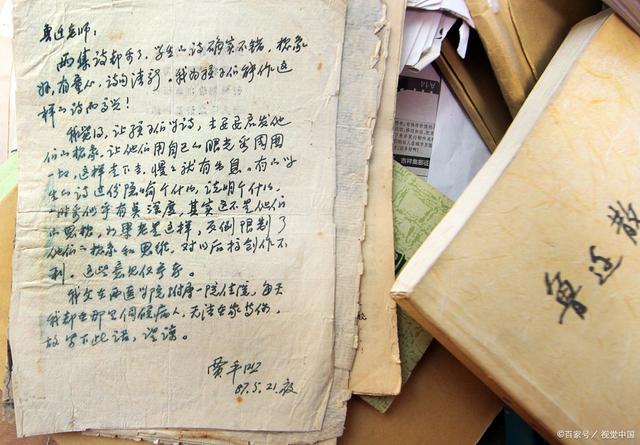 鲁老师:
两集诗都看了,学生的诗确实不错,想象
好,有童心,诗句清新。我为孩子们能作这
样的诗而高兴!
我觉得,让孩子们学诗,主要是启发他
们的想象,让他们用自己的眼光看周围
一切,这样走下去,慢慢就有出息。有的学
生的诗过份隐喻个什么,说明个什么,
一时看似乎有莫深度,其实这不是他们
的思想,如果老是这样,反倒限制了
他们的想象和思维,对以后搞创作不
利。这些意见仅参考。
我父在西医学院附属一院住院,每天
我都在那里伺候病人,无法在家
故写下此话,谅谅。
贾平凹
87.5.21.夜
A14
鲁 散
©百家号／视觉中国